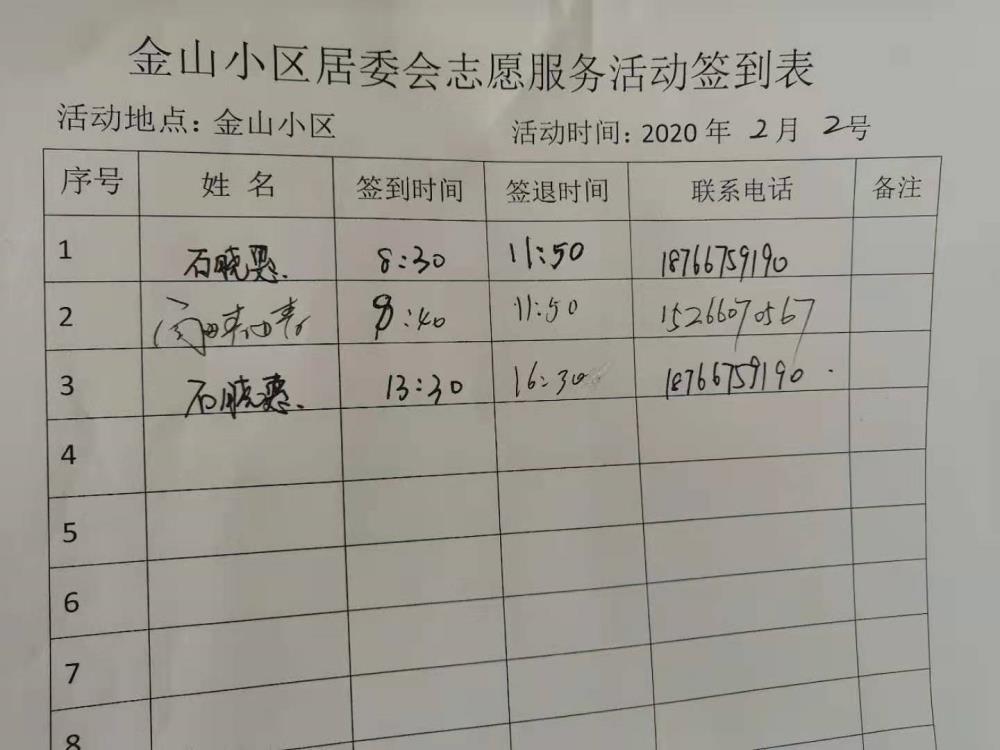 金山小区居委会志愿服务活动签到表
活动地点：金山小区 活动时间：2020年 2月 2号
序号 姓名 签到时间 签退时间 联系电话 备注
1 石晓 8:30 11:50 18766759190
2 8:40 11:50 15266070567
3 石晓 13:30 16:30 18766759190
4
5
6
7
8